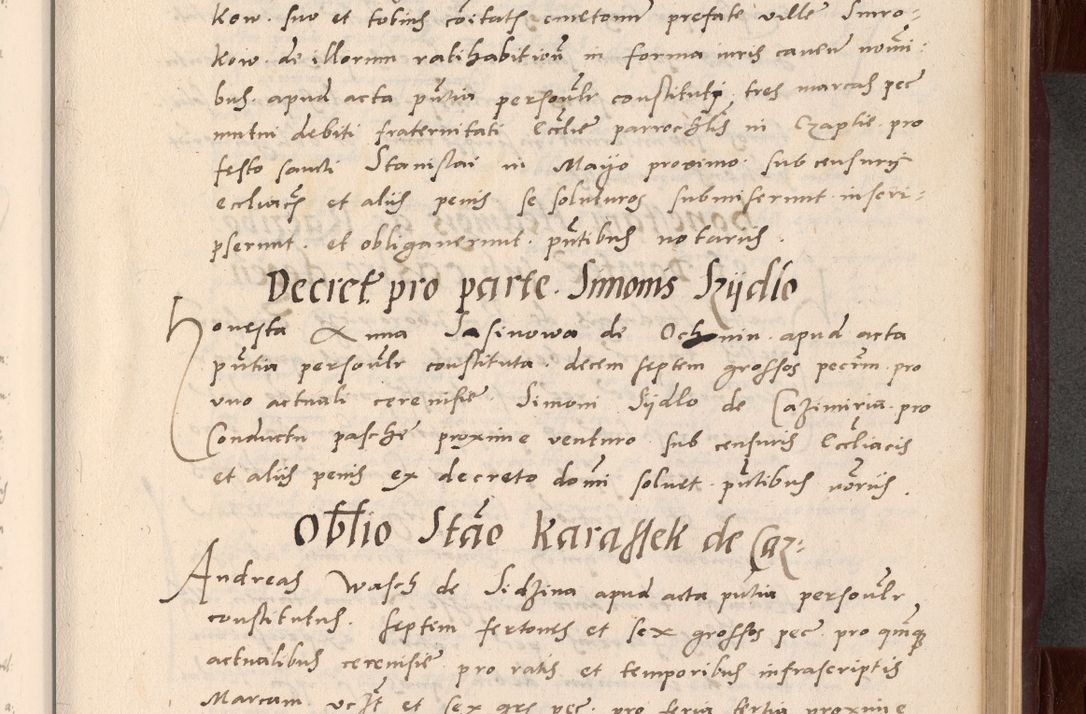 kow. suo et totius co͠itatis cmetonum prefate ville Smro-
kow. de illorum ratihabitione͠ in forma iuris cauen nomi-
bus. apud acta pu͠tia perso͠nlr constituti. tres marcas pec
mutui debiti fraternitati Eccl͠ie parrochlis in Czaplie. pro
festo sancti Stanislai in Mayo proximo. sub censuris
eccl͠iacis et aliis penis se soluturos submiserunt. inscri-
pserunt. et obligauerunt. pn͠tibus notariis.
Decret. pro parte. Simonis Szydlo
Honesta Anna Jasinowa de Ochonin. apud acta
pu͠tia perso͠nlr constituta. decem septem grossos pecu͠m. pro
uno actuali cereuisie. Simoni Sydlo de Cazimiria. pro
Conductu pasche proxime venturo. sub censuris Eccl͠iacis
et aliis penis ex decreto do͠mi soluet. pn͠tibus no͠riis.
Obl͠io Sta͠o Karassek de Caz-
Andreas Wasch de Sidzina apud acta pu͠tia perso͠nlr
constitutus. septem fertones et sex grossos pec. pro quinque
actualibus cereuisie pro ratis et temporibus infrascriptis
Marcam. et sex grs pec. pro feria tertia proxime